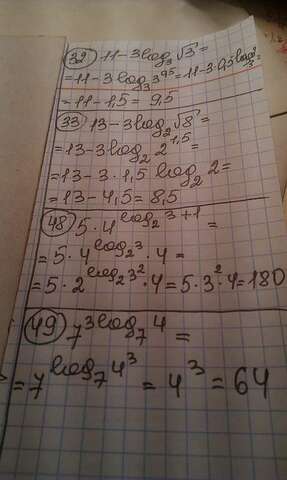 32) 11-3log₃√3=
=11-3log₃3^0,5=11-3·0,5log₃3=
=11-1,5=9,5
33) 13-3log₂√8=
=13-3log₂2^1,5=
=13-3·1,5log₂2=
=13-4,5=8,5
48) 5·4^(log₂3+1)=
=5·4^(log₂3)·4=
=5·2^(log₂3²)·4=5·3²·4=180
49) 7^(3log₇4)=
=7^(log₇4³)=4³=64